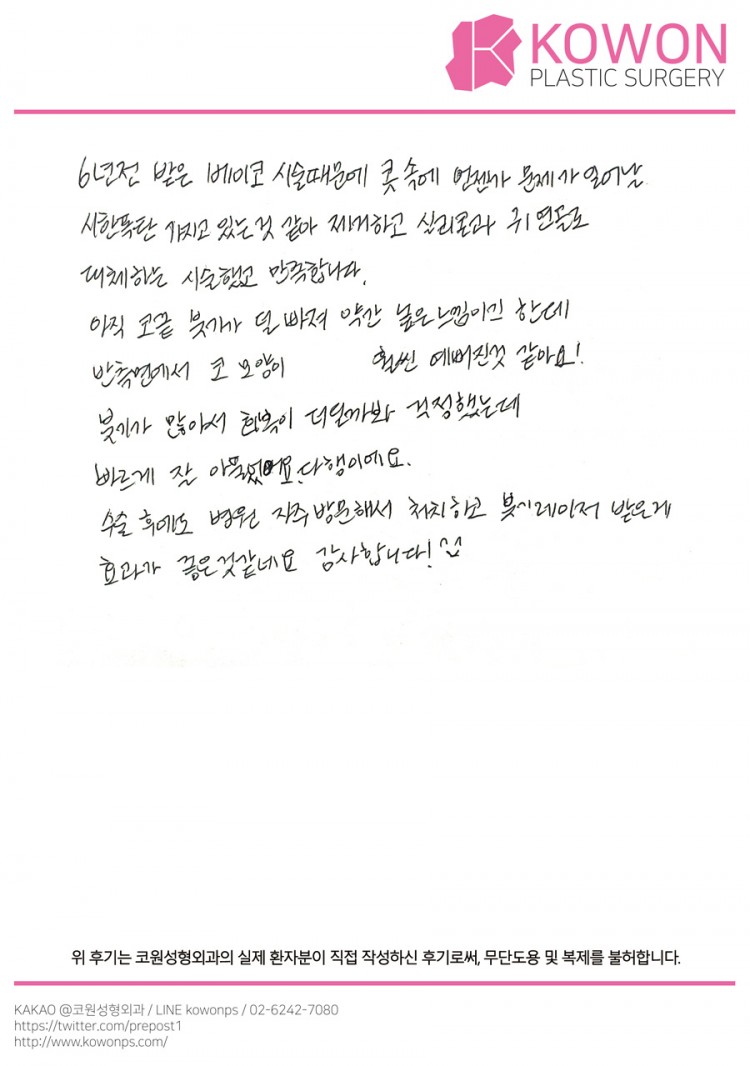 KOWON
PLASTIC SURGERY
6년전 받은 베이코 시술때문에 콧속에 언젠가 문제가 일어날
시한폭탄 가지고 있는것 같아 제거하고 실리콘과 귀 연골로
대체하는 시술했고 만족합니다.
아직 코끝 붓기가 덜 빠져 약간 높은느낌이긴 한데
반측면에서 코 모양이 훨씬 예뻐진것 같아요!
붓기가 많아서 회복이 더딜까봐 걱정했는데
빠르게 잘 아물었어요. 다행이에요.
수술 후에도 병원 자주방문해서 처치하고 붓기레이저 받은게
효과가 좋은것같네요 감사합니다!
위 후기는 코원성형외과의 실제 환자분이 직접 작성하신 후기로써, 무단도용 및 복제를 불허합니다.
KAKAO @코원성형외과 / LINE kowonps / 02-6242-7080
https://twitter.com/prepost1
http://www.kowonps.com/